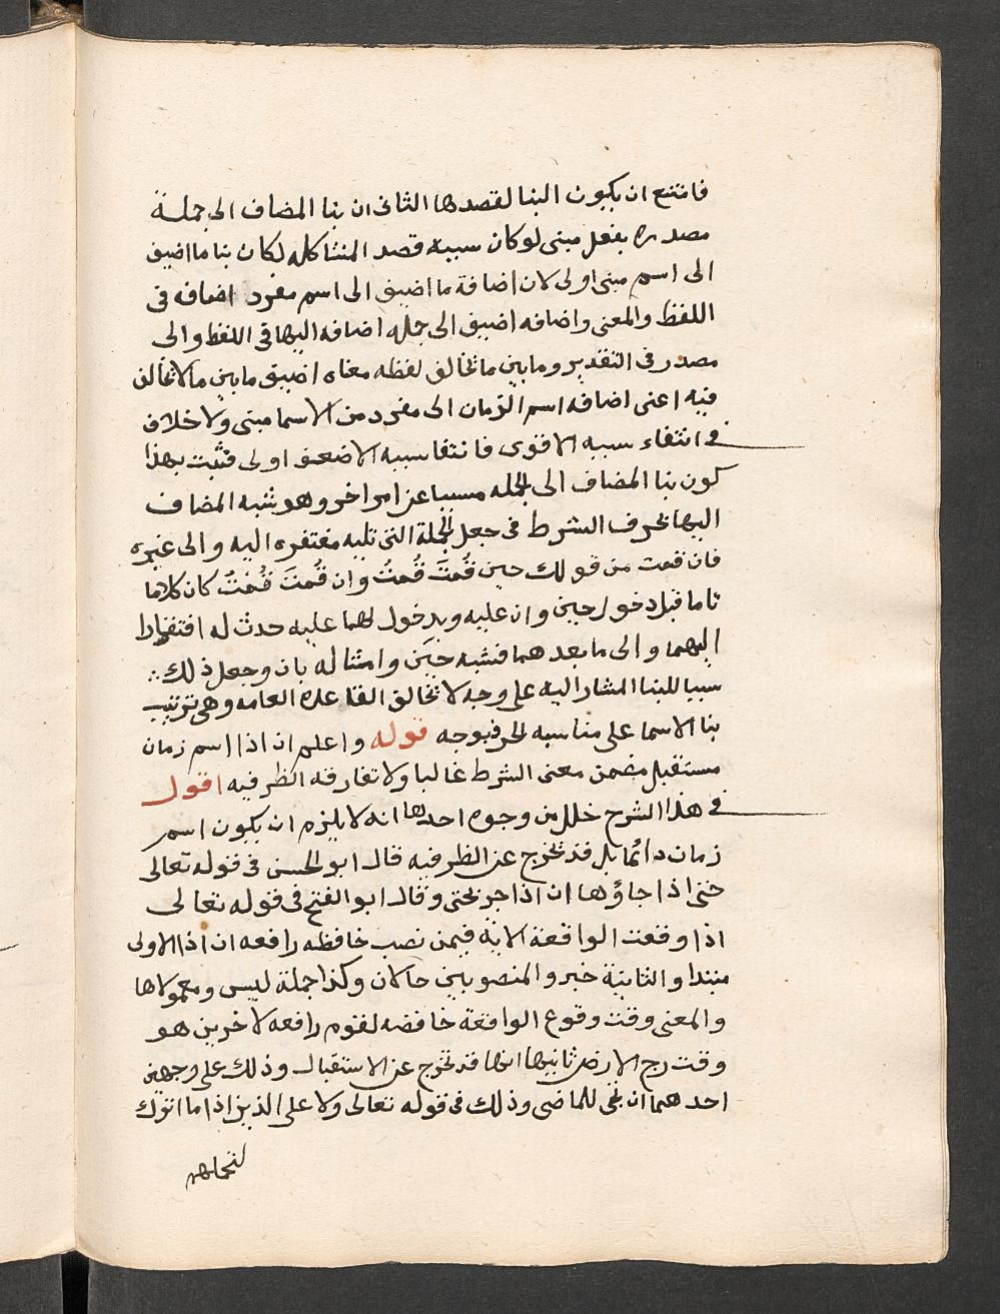 فامتنع ان يكون البنا لقصدها الثانى ان بنا المضاف الى جملة
مصدره بفعل مبنى لو كان سببه قصد المشاكله لكان بنا ما اضيف
الى اسم مبنى اولى لان اضافة ما اضيف الى اسم مفرد اضافه فى
اللفظ والمعنى واضافه اضيف الى جمله اضافه اليها فى اللفظ والى
مصدر فى التقدير وما بين ما تخالف لفظه معناه اضيق مابين مالا تخالف
فيه اعنى اضافه اسم الزمان الى مفرد من الاسما مبنى ولا خلاف
فى انتفاء سببه الاقوى فانتفا سببه الاضعف اولى فثبت بهذا
كون بنا المضاف الى الجمله مسببا عن امر اخر وهو شبه المضاف
اليها بحرف الشرط فى جعل الجملة التى تليه مفتقره اليه والى غيره
فان قمت من قولك حين قُمتَ قُمتُ وان قُمتَ قُمْتُ كان كلاما
تاما قبل دخول حين وان عليه وبدخول لهما عليه حدث له افتقارا
اليهما والى ما بعدهما فشبه حين وامثاله بان وجعل ذلك
سببا للبنا المشار اليه على وجه لا تخالف القاعده العامه وهى ترتيب
بنا الاسما على مناسبه الحرف بوجه قوله واعلم ان اذا اسم زمان
مستقبل مضمن معنى الشرط غالبا ولا تفارقه الظرفيه اقول
فى هذا الشرح خلل من وجوه احدها انه لا يلزم ان يكون اسم
زمان دائما بل قد تخرج عن الظرفيه قال ابو الحسن فى قوله تعالى
حتى اذا جاؤها ان اذا جر بحتى وقال ابو الفتح فى قوله تعالى
اذا وقعت الواقعة الاية فيمن نصب خافظه رافعه ان اذا الاولى
مبتدا والثانية خبر والمنصوبين حالان وكذا جملة ليس ومعمولاها
والمعنى وقت وقوع الواقعة خافضه لقوم رافعه لاخرين هو
وقت رج الارض ثانيها انها قد تخرج عن الاستقبال وذلك على وجهين
احدهما ان تجى للماضى وذلك فى قوله تعالى ولا على الذين اذا ما اتوك
لتحملهم